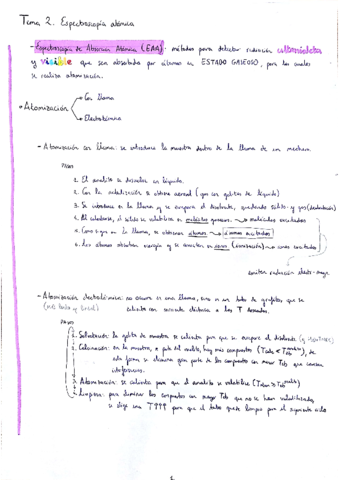 Tema 2. Espectroscopía atómica
- Espectroscopia de Absorción Atómica (EAA): métodos para detectar radiación ultravioleta
y visible que sea absorbida por átomos en ESTADO GASEOSO, para los cuales
se realiza atomización.
• Atomización
Con llama
Electrotérmica
• Atomización con llama: se introduce la muestra dentro de la llama de un mechero.
PASOS
1. El analito se disuelve en líquido.
2. Con la nebulización se obtiene aerosol (gas con gotitas de líquido)
3. Se introduce en la llama y se evapora el disolvente, quedando sólido y gas (desolvatación)
4. Al calentarse, el sólido se volatiliza en moléculas gaseosas. → moléculas excitadas
5. Como sigue en la llama, se obtienen átomos → átomos excitados
6. Los átomos absorben energía y se excitan en iones (ionización) → iones excitados
emiten radiación electro-magn.
• Atomización electrotérmica: no ocurre en una llama, sino en un tubo de grafito, que se
calienta con corriente eléctrica a las T deseadas.
PASOS
- Solvatación: la gotita de muestra se calienta para que se evapore el disolvente
- Calcinación: en la muestra, a parte del analito, hay más compuestos
esta forma se elimina gran parte de los compuestos con menor Teb que causan
interferencias.
- Atomización: se calienta para que el analito se volatilice
- Limpieza: para eliminar los compuestos con mayor Teb que no se han volatilizado,
se elige una T↑↑↑ para que el tubo quede limpio para el siguiente ciclo